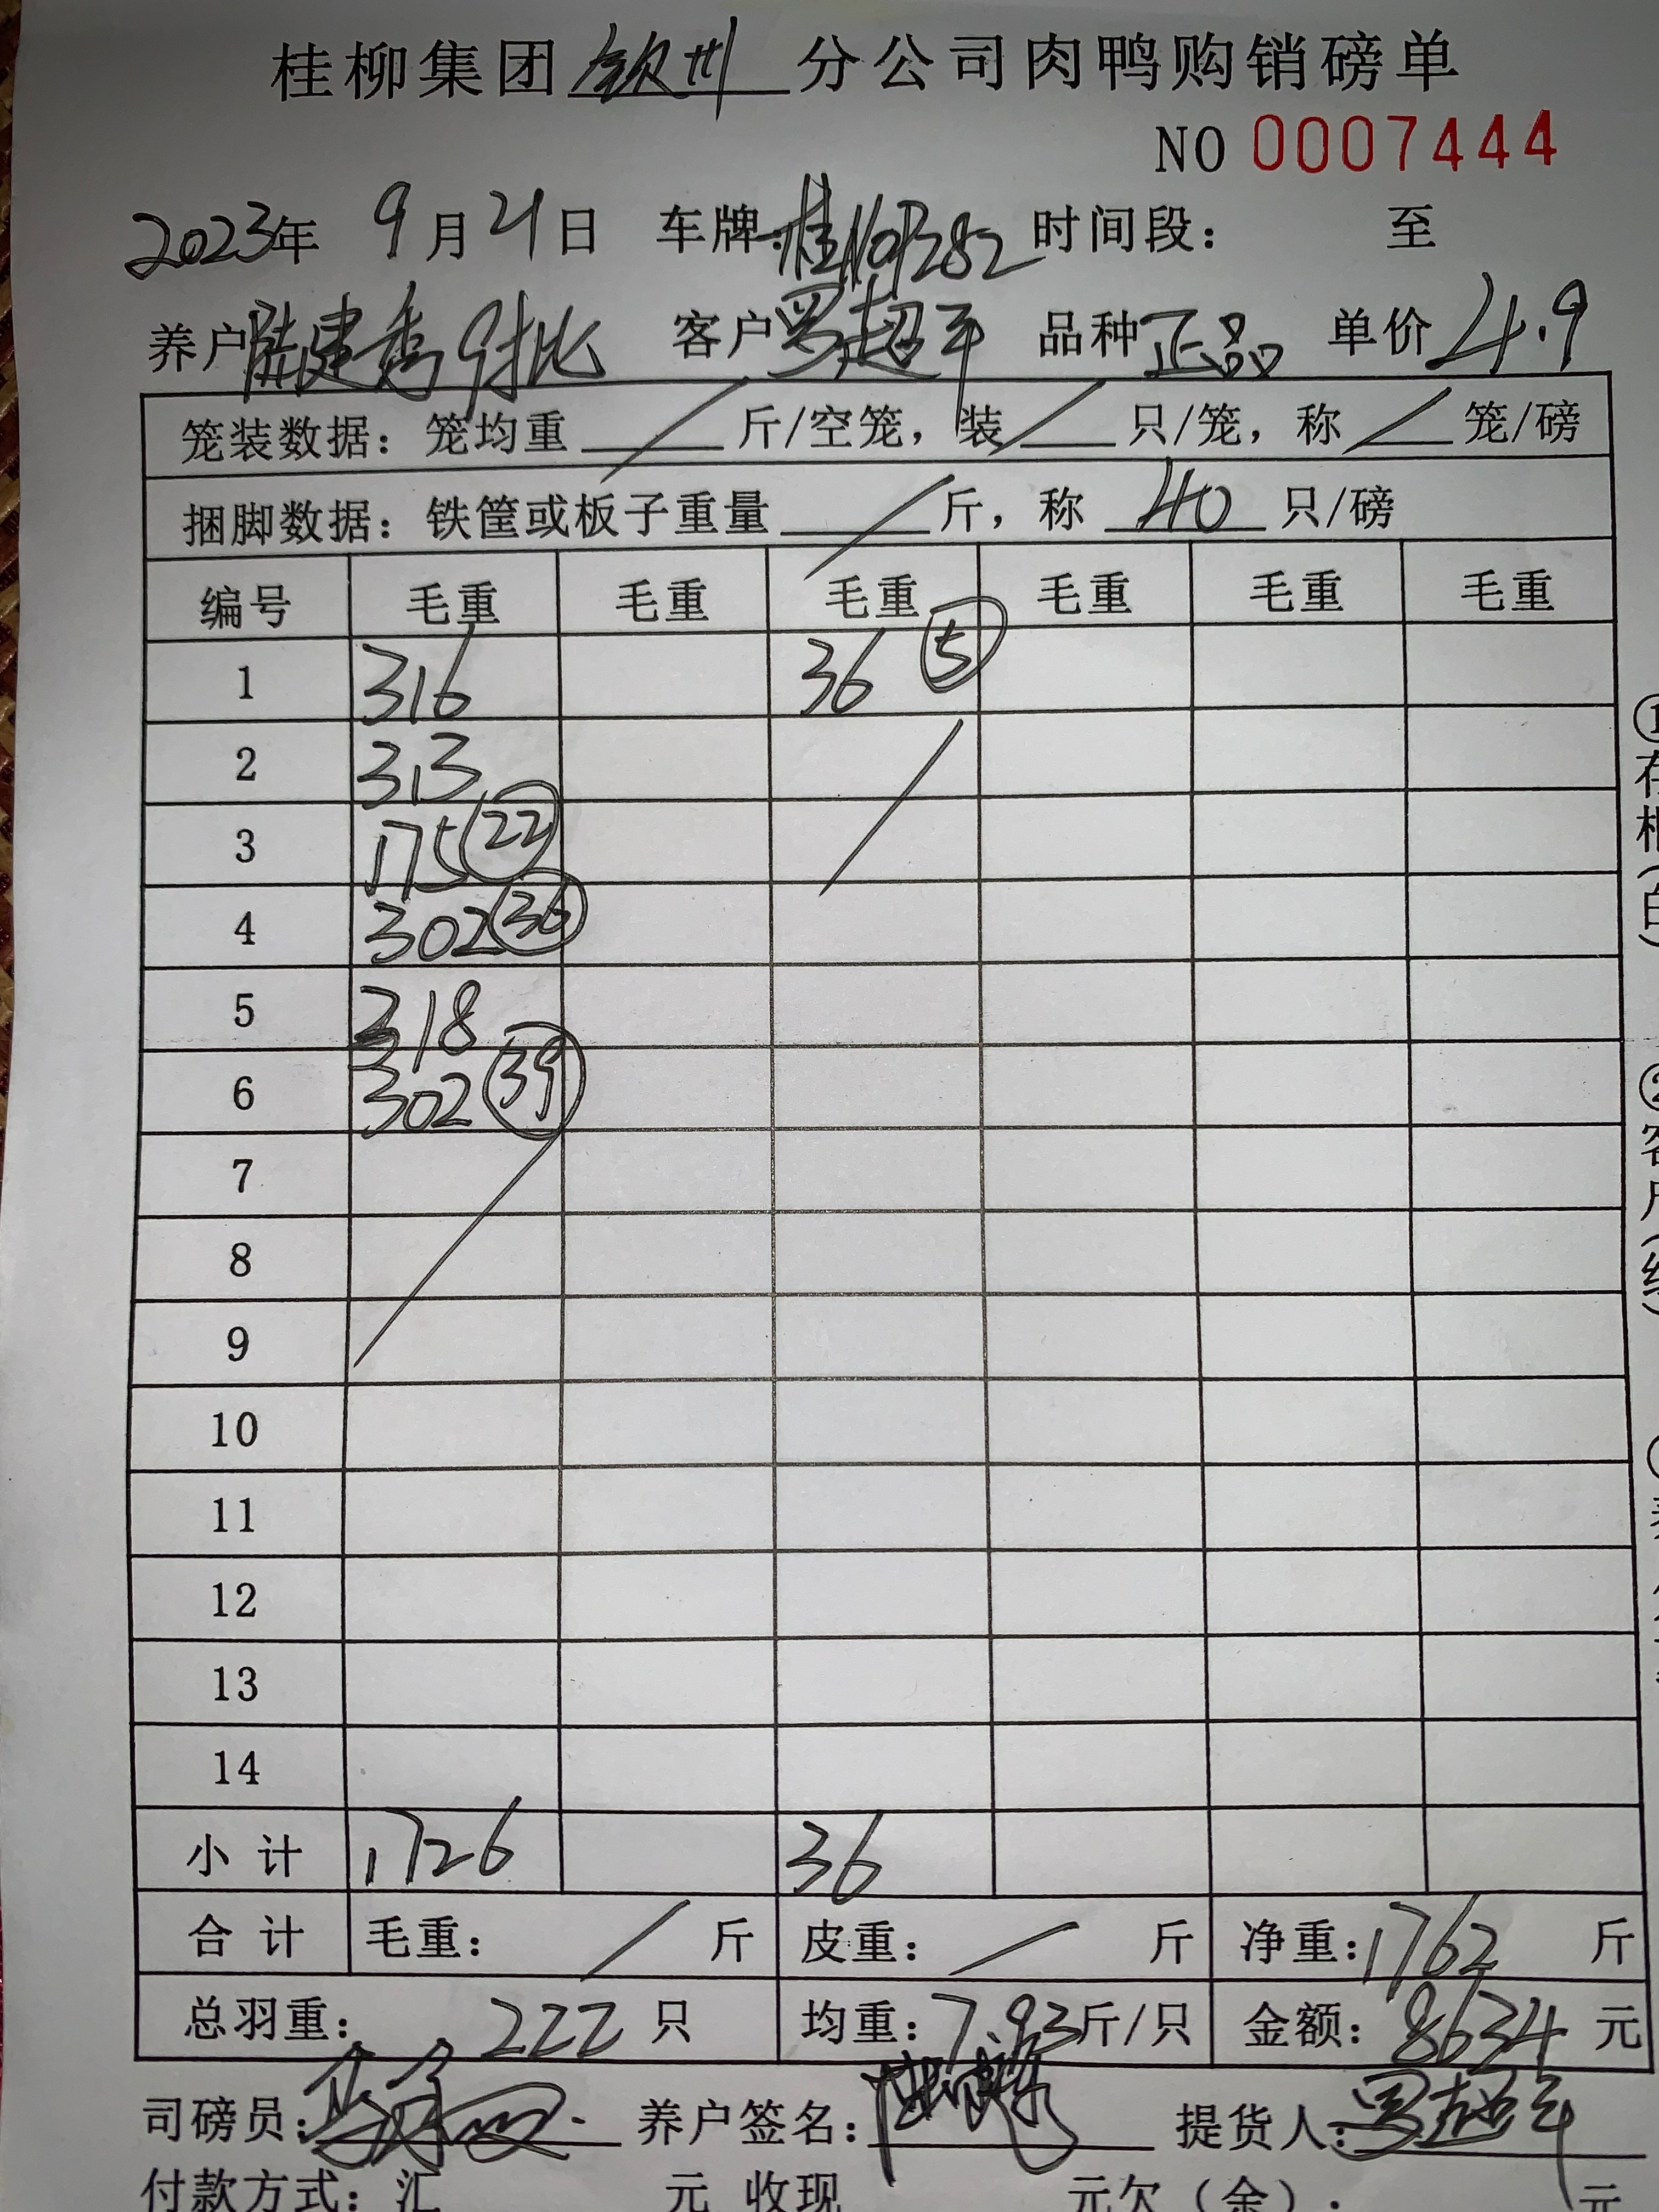 桂柳集团 钦州 分公司肉鸭购销磅单
NO 0007444
2023年 9月21日 车牌:桂N07282 时间段: 至
养户 陆建秀9批 客户 罗超平 品种 正品 单价 4.9
笼装数据:笼均重 / 斤/空笼,装 / 只/笼,称 / 笼/磅
捆脚数据:铁筐或板子重量 / 斤,称 40 只/磅
编号 毛重 毛重 毛重 毛重 毛重 毛重
1 316 36 (5)
2 313
3 175 (22)
4 302 (36)
5 318
6 302 (39)
7
8
9
10
11
12
13
14
小计 1726 36
合计 毛重: / 斤 皮重: / 斤 净重:1762 斤
总羽重: 222 只 均重:7.93斤/只 金额:8634元
司磅员: 养户签名: 提货人:罗超平
付款方式:汇 元 收现 元欠(余): 元
①存根(白)
②客户(红)